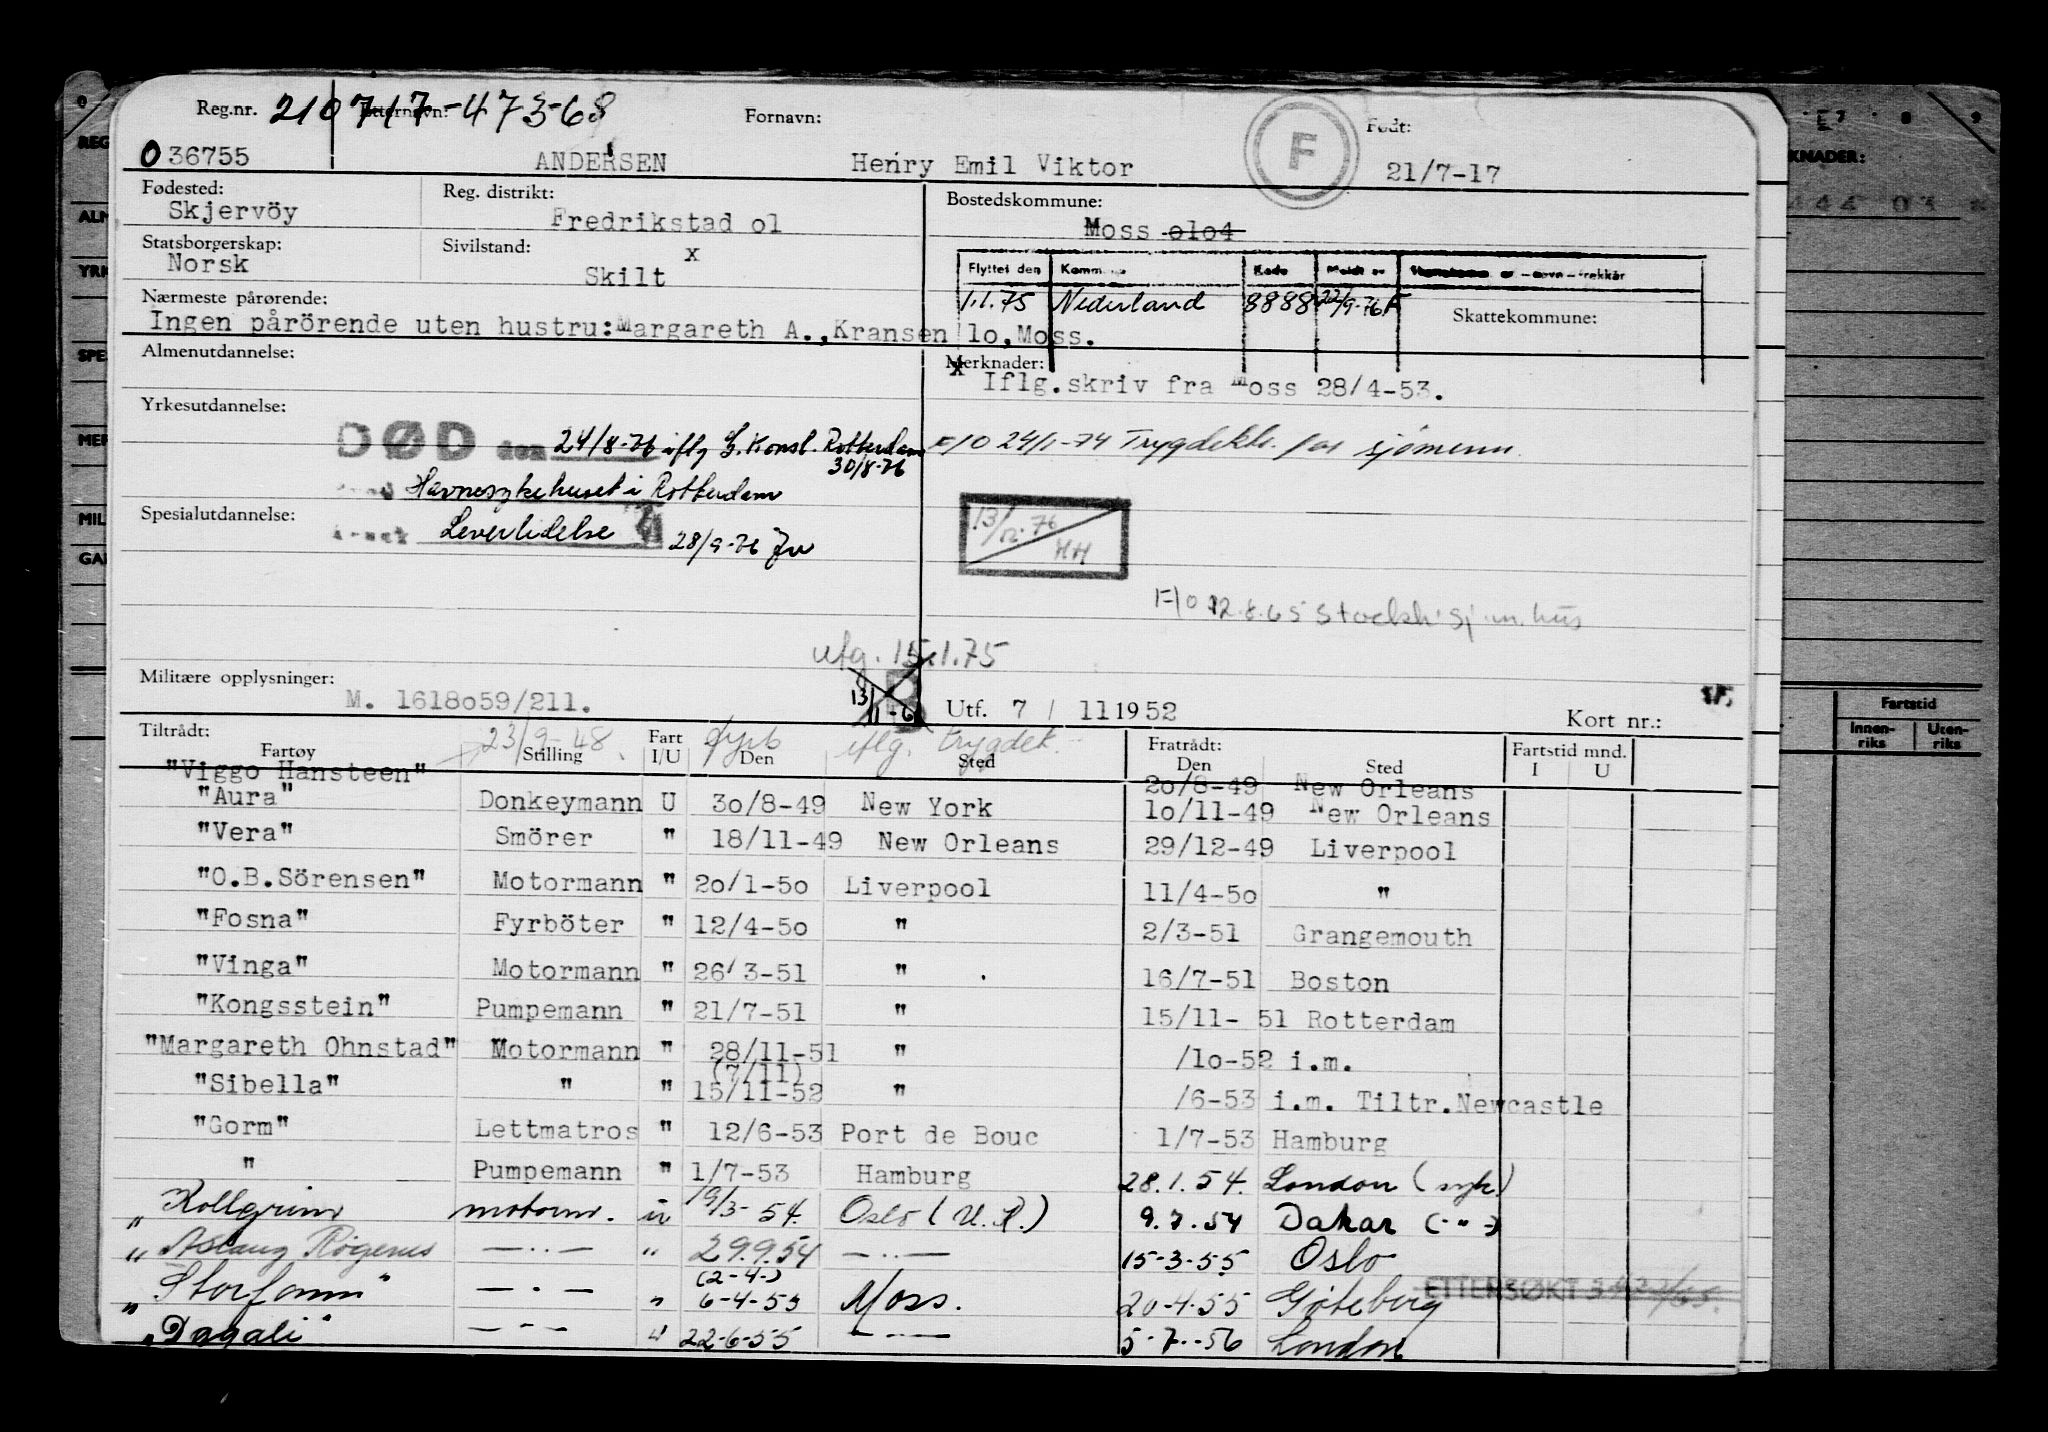 Reg.nr. 210717-473-68 Etternavn: Fornavn: F Født:
036755 ANDERSEN Henry Emil Viktor 21/7-17
Fødested: Skjervöy Reg. distrikt: Fredrikstad ol Bostedskommune: Moss olo4
Statsborgerskap: Norsk Sivilstand: x Skilt
Flyttet den Kommune Kode Meldt av
1.1.75 Nederland 8888 22/9-76 F
Skattekommune:
Nærmeste pårørende:
Ingen pårörende uten hustru:Margareth A.,Kransen lo,Moss.
Almenutdannelse: Merknader:
x Iflg.skriv fra Moss 28/4-53.
Yrkesutdannelse:
DØD den 24/8-76 iflg G. Konsl. Rotterdam 30/8-76
F/O 24/1-74 Trygdekt. for sjömenn
Havnesykehuset i Rotterdam
Spesialutdannelse:
Årsak Leverlidelse 28/9-76
13/12.76 HH
F/O 12.8.65 Stockh. sj.m.hus
utg. 15.1.75
Militære opplysninger: M. 1618o59/211.
13/11-6
Utf. 7 / 11 1952 Kort nr.:
Tiltrådt: 23/9-48 fyrb iflg. trygdek. Fratrådt: Fartstid mnd.
Fartøy Stilling Fart I/U Den Sted Den Sted I U
"Viggo Hansteen" 2o/8-49 New Orleans
"Aura" Donkeymann U 3o/8-49 New York lo/11-49 New Orleans
"Vera" Smörer " 18/11-49 New Orleans 29/12-49 Liverpool
"O.B.Sörensen" Motormann " 2o/1-5o Liverpool 11/4-5o "
"Fosna" Fyrböter " 12/4-5o " 2/3-51 Grangemouth
"Vinga" Motormann " 26/3-51 " 16/7-51 Boston
"Kongsstein" Pumpemann " 21/7-51 " 15/11- 51 Rotterdam
"Margareth Ohnstad" Motormann " 28/11-51 " /lo-52 i.m.
"Sibella" " " (7/11) 15/11-52 " /6-53 i.m. Tiltr.Newcastle
"Gorm" Lettmatros " 12/6-53 Port de Bouc 1/7-53 Hamburg
" Pumpemann " 1/7-53 Hamburg 28.1.54. London (syk)
" Kollgrim motorm. u 19/3-54. Oslo (U.R.) 9.7.54 Dakar (-"-)
" Aslaug Rogenæs —..— " 29.9.54 —..— 15-3-55 Oslo
" Storfonn" —.— " (2-4-) 6-4-55 Moss. 20-4-55 Göteborg
ETTERSØKT
"Dagali" —"— " 22-6-55 —..— 5-7-56 London
KNADER:
444 03
Fartstid
Innenriks Utenriks